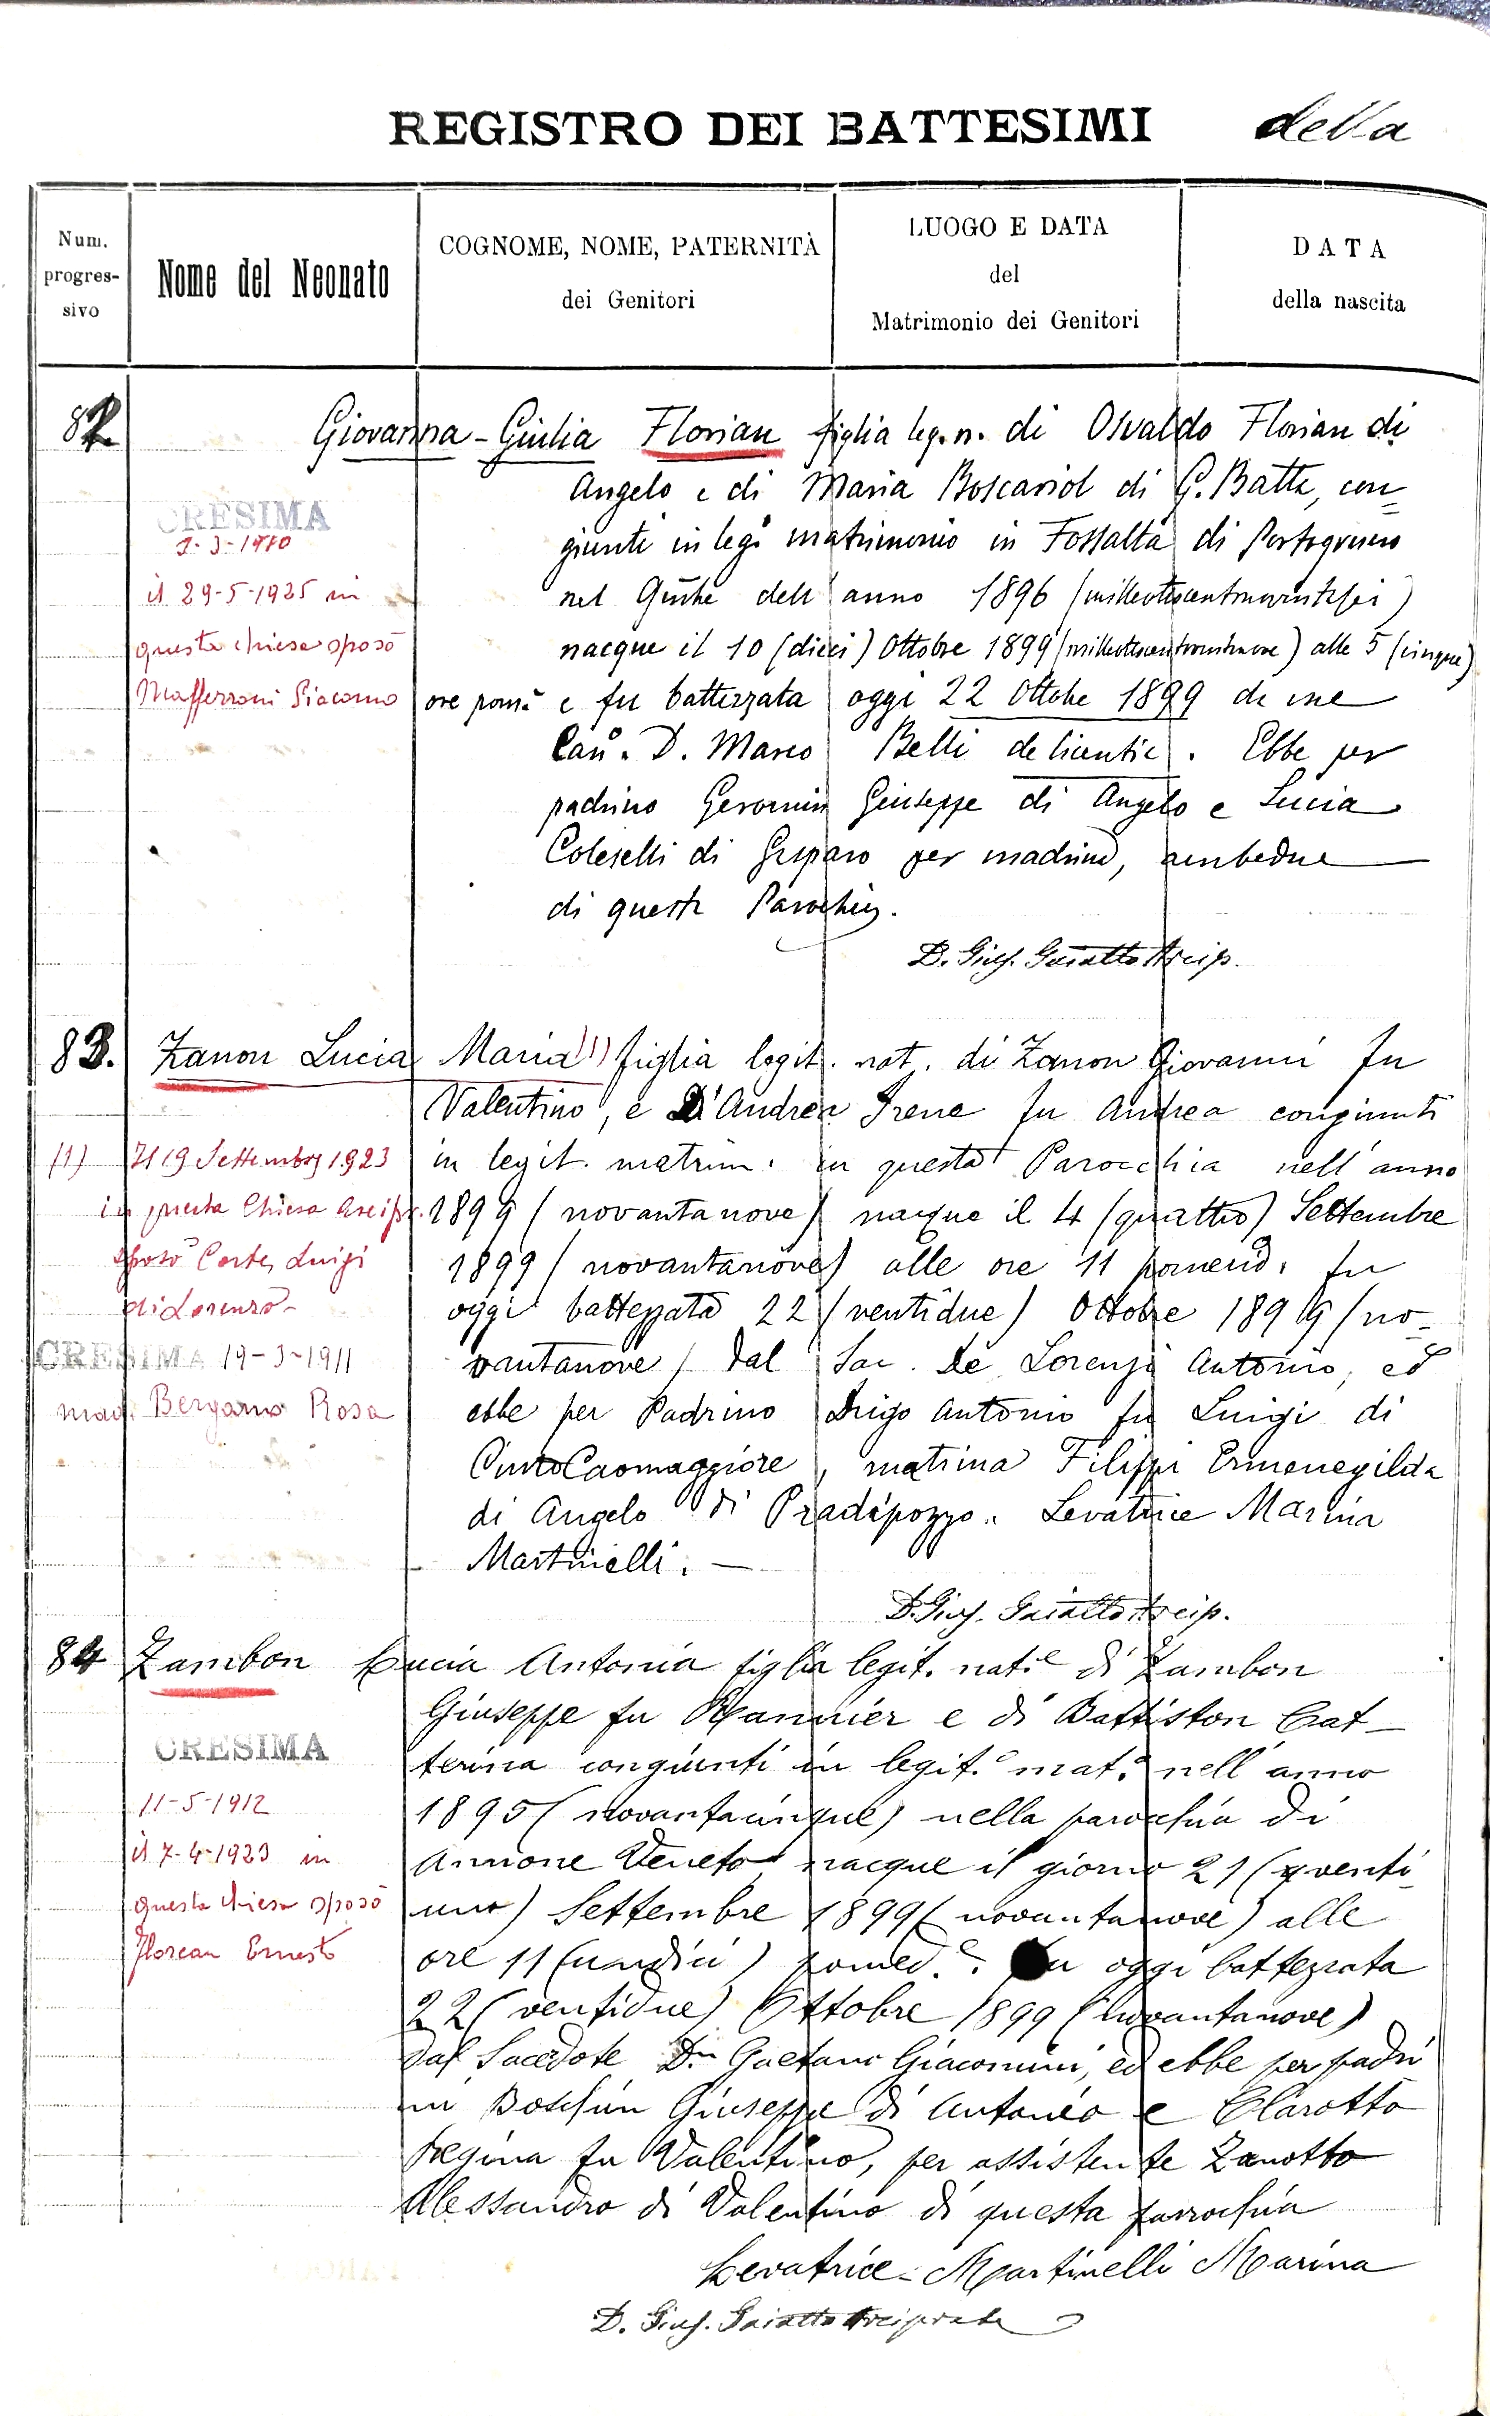 REGISTRO DEI BATTESIMI della
Num. progres-sivo
Nome del Neonato
COGNOME, NOME, PATERNITÀ
dei Genitori
LUOGO E DATA
del
Matrimonio dei Genitori
DATA
della nascita
82
Giovanna-Giulia Florian figlia leg. n. di Osvaldo Florian di
Angelo e di Maria Boscariol di G. Batta, con=
giunti in leg.o matrimonio in Fossalta di Portogruaro
nel dell'anno 1896 (milleottocentonovantasei)
nacque il 10 (dieci) Ottobre 1899 (milleottocentonovantanove) alle 5 (cinque)
ore pom.e e fu battezzata oggi 22 Ottobre 1899 da me
Can.o D. Marco Belli de licentia. Ebbe per
padrino Geromin Giuseppe di Angelo e Lucia
Coleselli di Gasparo per madrina, ambedue
di questa Parochia.
D. Gius. Gaiatto Arcip.
CRESIMA
il 29-5-1925 in
questa chiesa sposò
Mafferroni Giacomo
83. Zanon Lucia Maria (1) figlia legit. nat. di Zanon Giovanni fu
Valentino, e D'Andrea Irene fu Andrea congiunti
in legit. matrim. in questa Parocchia nell'anno
1899 (novantanove) nacque il 4 (quattro) Settembre
1899 (novantanove) alle ore 11 pomerid. fu
oggi battezzata 22 (ventidue) Ottobre 1899 (no-
vantanove) dal Sac. De Lorenzi Antonio, ed
ebbe per Padrino Drigo Antonio fu Luigi di
CintoCaomaggiore, matrina Filippi Ermenegilda
di Angelo di Pradipozzo. Levatrice Marina
Martinelli. —
D. Gius. Gaiatto Arcip.
(1) Il 19 Settembre 1923
in questa Chiesa Arcipr.
sposò Corte Luigi
di Lorenzo -
CRESIMA 19-3-1911
mad. Bergamo Rosa
84 Zambon Lucia Antonia figlia legit. nat.e di Zambon
Giuseppe fu Rannier e di Battiston Cat-
terina congiunti in legit.o mat.o nell'anno
1895 (novantacinque) nella parochia di
Annone Veneto nacque il giorno 21 (venti-
uno) Settembre 1899 (novantanove) alle
ore 11 (undici) pomed.e. Fu oggi battezzata
22 (ventidue) Ottobre 1899 (novantanove)
dal Sacedote Dn Gaetano Giacomini, ed ebbe per padri
ni Boschin Giuseppe di Antonio e Clarotto
Regina fu Valentino, per assistente Zanotto
Alessandro di Valentino di questa parrochia
Levatrice - Martinelli Marina
D. Gius. Gaiatto Arciprete
CRESIMA
11-5-1912
il 7-4-1923 in
questa chiesa sposò
Florean Ernesto